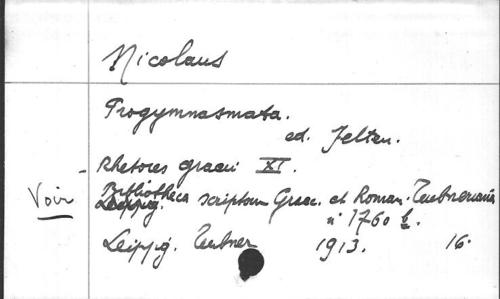 Nicolaus
Progymnasmata.
ed. Felten.
Rhetores graeci XI.
Voir Bibliotheca scriptorum Graec. et Roman. Teubneriana
n° 1760 b.
Leipzig. Teubner 1913. 16.